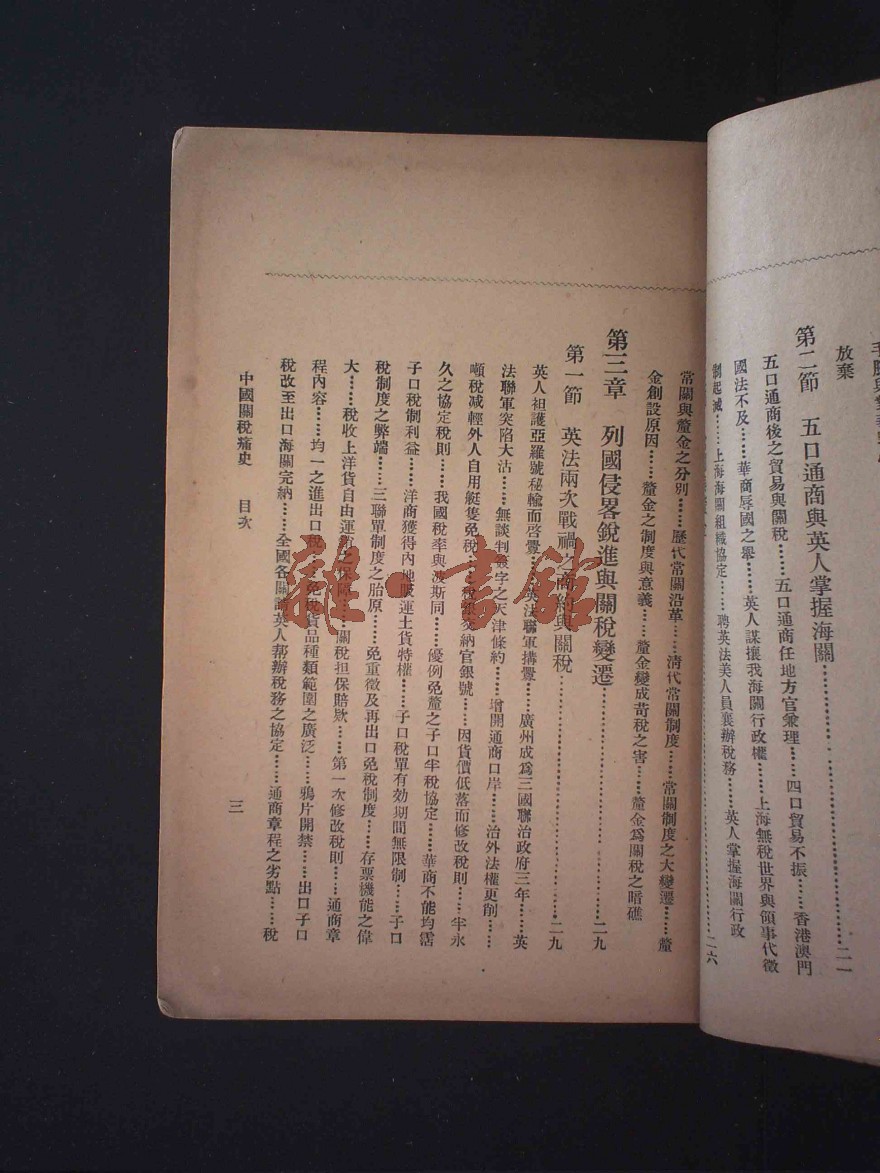 放棄
第二節　五口通商與英人掌握海關……二一
五口通商後之貿易與關稅……五口通商任地方官兼理……四口貿易不振……香港澳門
國法不及……華商辱國之舉……英人謀攘我海關行政權……上海無稅世界與領事代徵
制起滅……上海海關組織協定……聘英法美人員襄辦稅務……英人掌握海關行政
……二六
常關與釐金之分別……歷代常關沿革……清代常關制度……常關制度之大變遷……釐
金創設原因……釐金之制度與意義……釐金變成苛稅之害……釐金為關稅之暗礁
第三章　列國侵畧銳進與關稅變遷……二九
第一節　英法兩次戰禍之商約與關稅……二九
英人袒護亞羅號秘輸而啓釁……英法聯軍搆釁……廣州成為三國聯治政府三年……英
法聯軍突陷大沽……無談判簽字之天津條約……增開通商口岸……治外法權更削……
噸稅減輕外人自用艇隻免稅……稅銀交納官銀號……因貨價低落而修改稅則……半永
久之協定稅則……我國稅率與波斯同……優例免釐之子口半稅協定……華商不能均霑
子口稅制利益……洋商獲得內地販運土貨特權……子口稅單有効期間無限制……子口
稅制度之弊端……三聯單制度之胎原……免重徵及再出口免稅制度……存票機能之偉
大……稅收上洋貨自由運銷之保障……關稅担保賠欵……第一次修改稅則……通商章
程內容……均一之進出口稅……免稅貨品種類範圍之廣泛……鴉片開禁……出口子口
稅改至出口海關完納……全國各關請英人帮辦稅務之協定……通商章程之劣點……稅
中國關稅痛史　目次
三
雜·書館